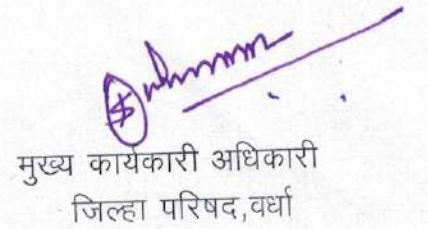 मुख्य कार्यकारी अधिकारी
जिल्हा परिषद,वर्धा